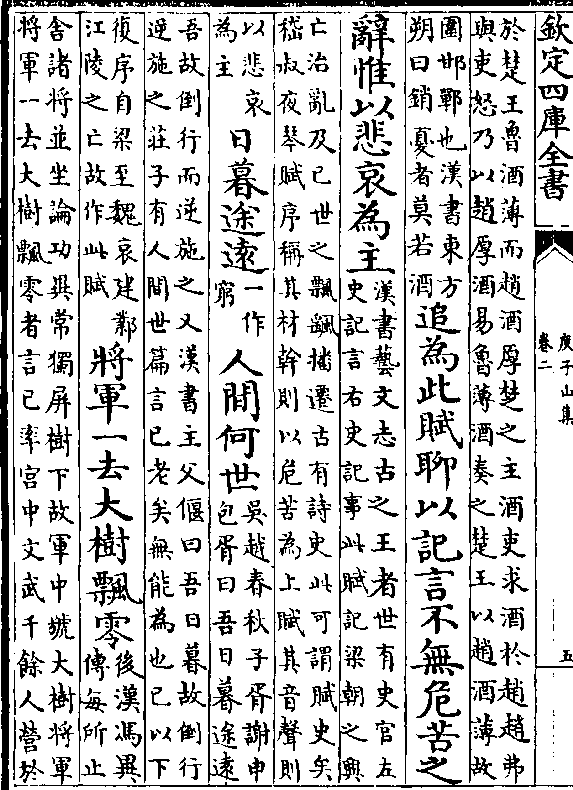 欽定四庫全書
庾子山集
卷二
五
於楚王魯酒薄而趙酒厚楚之主酒吏求酒於趙趙弗
與吏怒乃以趙厚酒易魯薄酒奏之楚王以趙酒薄故
圍邯鄲也漢書東方
朔曰銷憂者莫若酒
追為此賦聊以記言不無危苦之
辭惟以悲哀為主
漢書藝文志古之王者世有史官左
史記言右史記事此賦記梁朝之興
亡治亂及已世之飄颻播遷古有詩史此可謂賦史矣
嵇叔夜琴賦序稱其材幹則以危苦為上賦其音聲則
以悲哀
為主
日暮途遠
一作
窮
人間何世
吳越春秋子胥謝申
包胥曰吾日暮途遠
吾故倒行而逆施之又漢書主父偃曰吾日暮故倒行
逆施之莊子有人間世篇言已老矣無能為也已以下
復序自梁至魏哀建鄴
江陵之亡故作此賦
將軍一去大樹飄零
後漢馮異
傳每所止
舍諸將並坐論功異常獨屏樹下故軍中號大樹將軍
將軍一去大樹飄零者言已率宫中文武千餘人營於